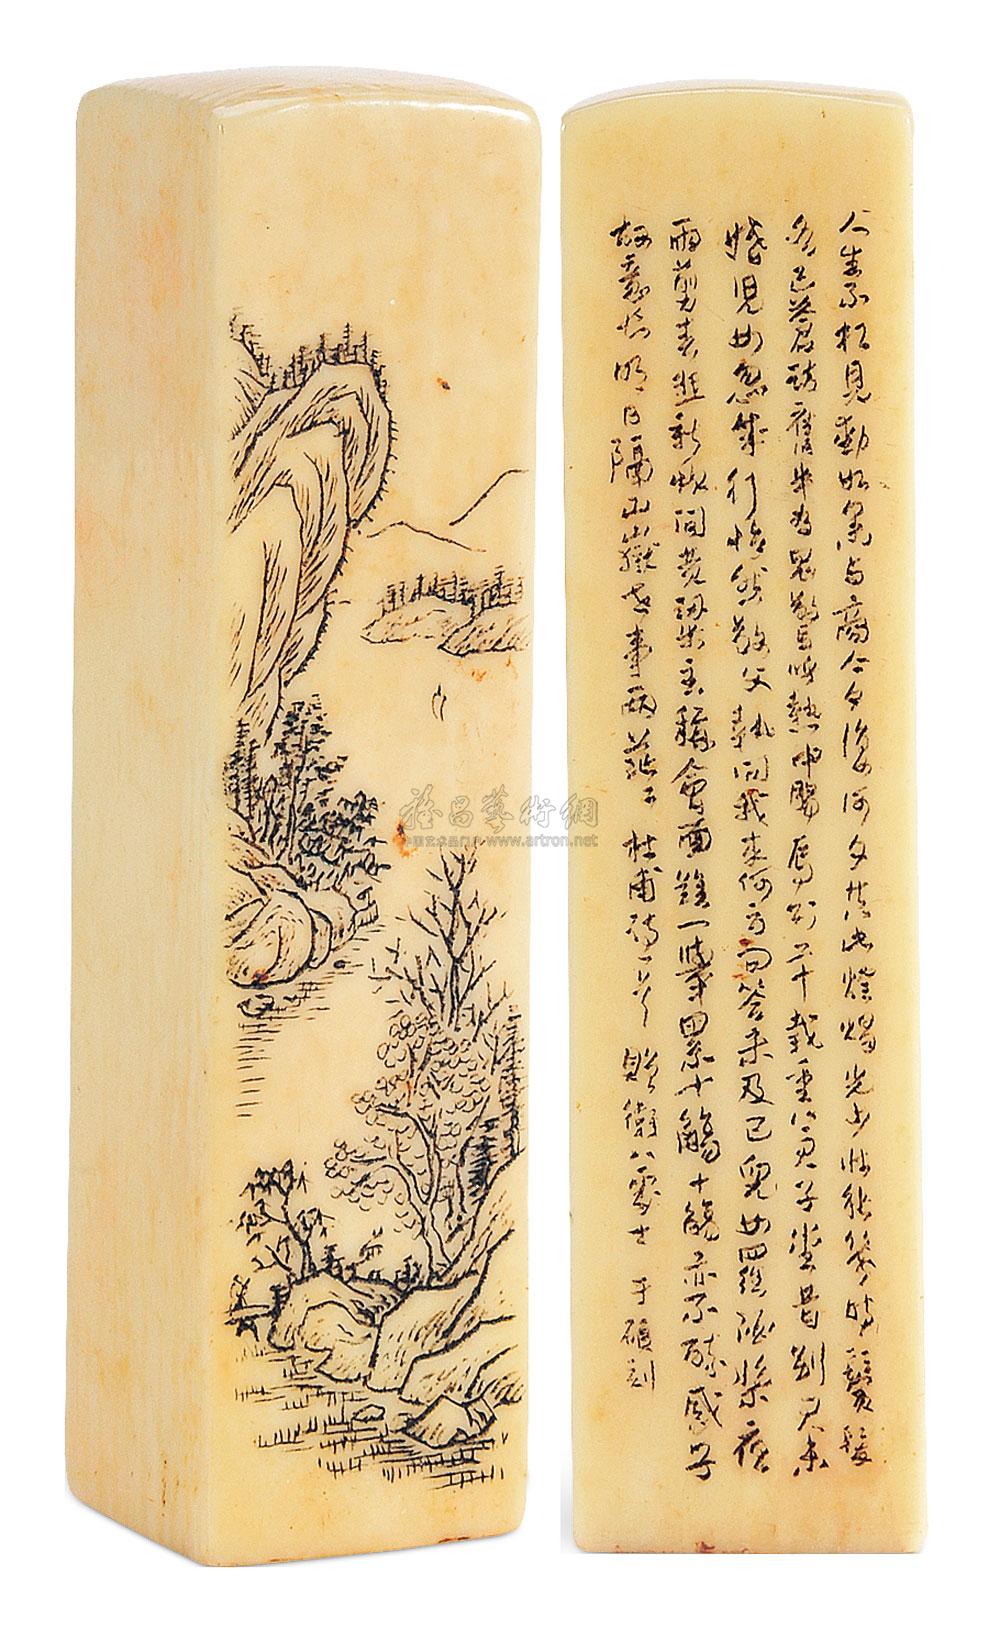 人生不相見動如參与商今夕復何夕共此燈燭光少壯能幾時鬢髮
各已蒼訪舊半為鬼驚呼熱中腸焉知二十載重上君子堂昔別君未
婚兒女忽成行怡然敬父執問我來何方問答未及已兒女羅酒漿夜
雨剪春韭新炊間黃粱主稱會面難一舉累十觴十觴亦不醉感子
故意長明日隔山嶽世事兩茫茫 杜甫詩一首 贈衛八處士 于碩刻
雅昌藝術網
www.artron.net